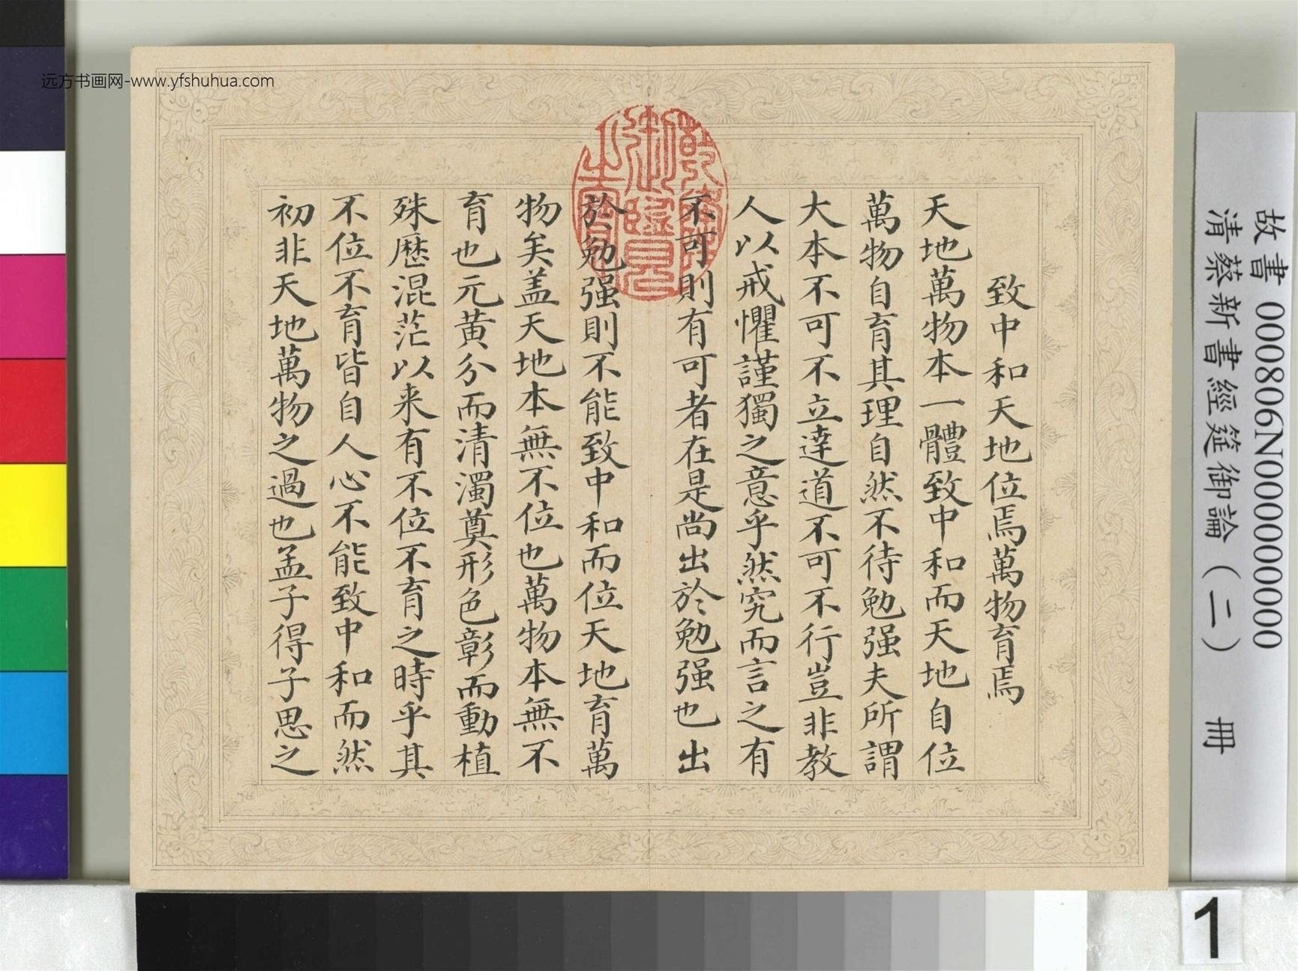 远方书画网-www.yfshuhua.com
故書 000806N000000000
清蔡新書經筵御論（二） 冊
乾隆御覽之寶
致中和天地位焉萬物育焉
天地萬物本一體致中和而天地自位
萬物自育其理自然不待勉强夫所謂
大本不可不立達道不可不行豈非教
人以戒懼謹獨之意乎然究而言之有
不可則有可者在是尚出於勉强也出
於勉强則不能致中和而位天地育萬
物矣盖天地本無不位也萬物本無不
育也元黃分而清濁奠形色彰而動植
殊歷混茫以来有不位不育之時乎其
不位不育皆自人心不能致中和而然
初非天地萬物之過也孟子得子思之
1